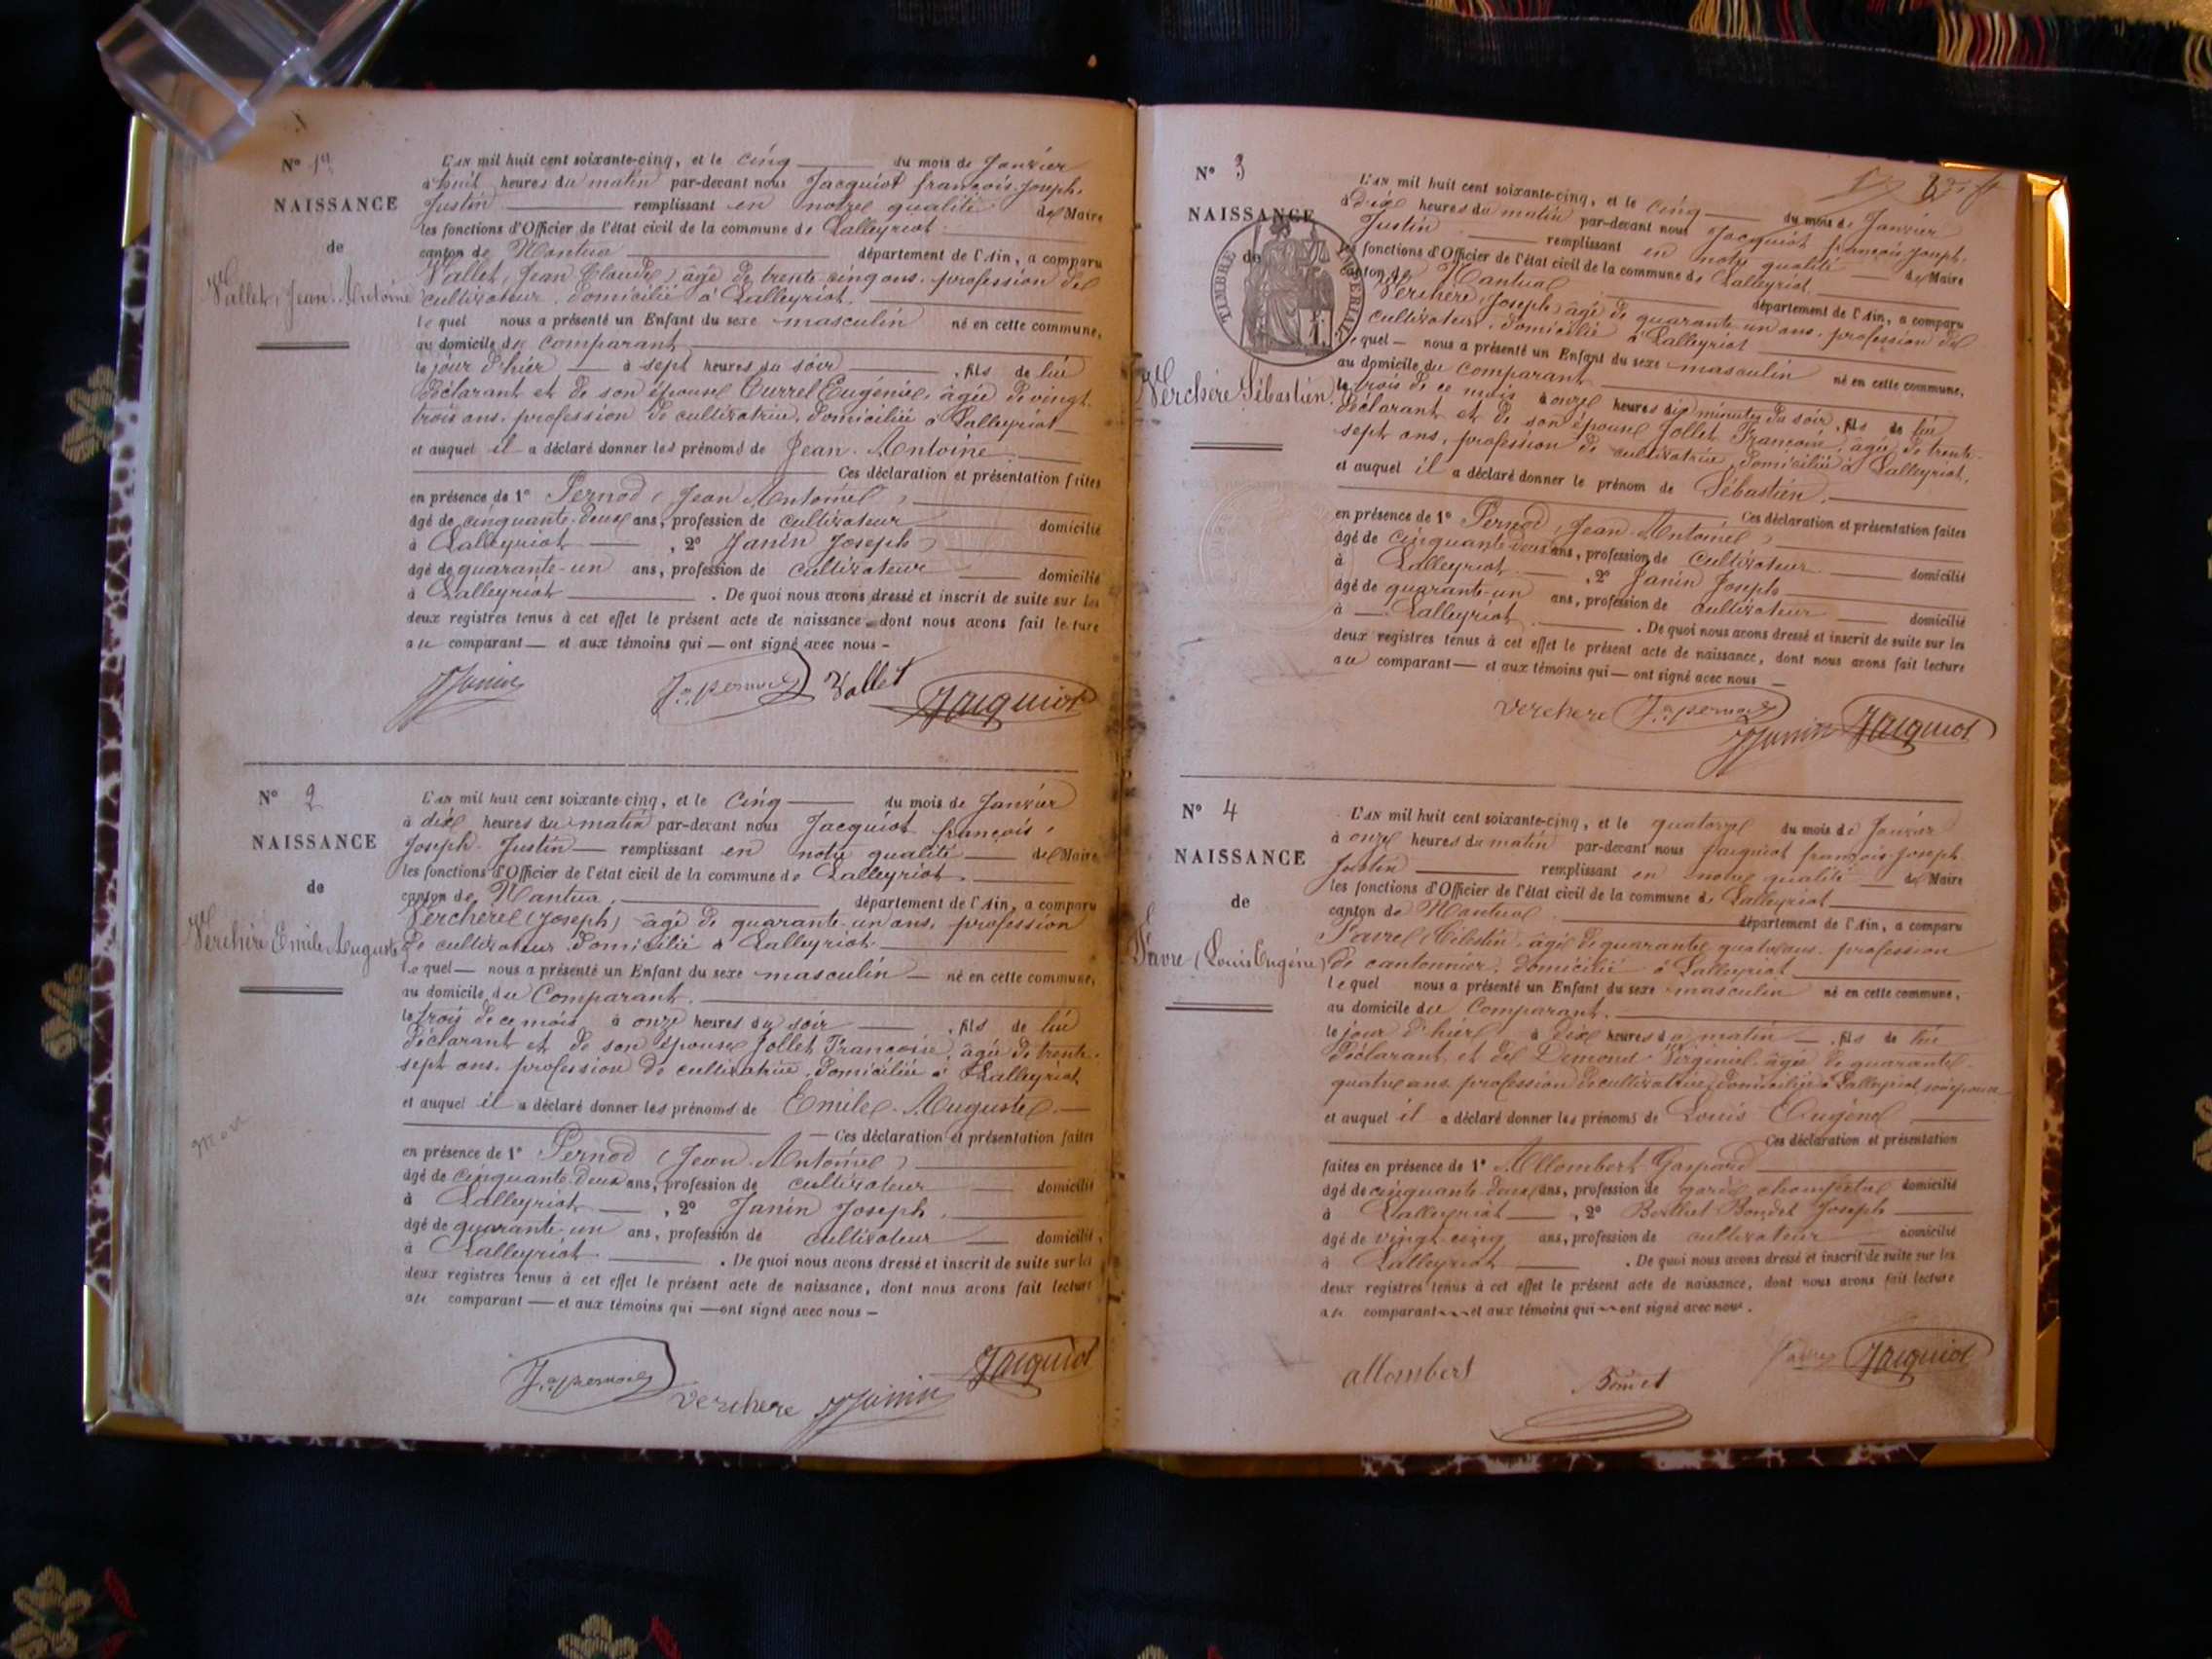 N° 1er
NAISSANCE
de
Vallet, Jean Antoine
L'AN mil huit cent soixante-cinq, et le cinq du mois de Janvier
à huit heures du matin par-devant nous Jacquiot françois-Joseph-
Justin remplissant en notre qualité de Maire
les fonctions d'Officier de l'état civil de la commune de Lalleyriat
canton de Nantua département de l'Ain, a comparu
Vallet, Jean Claude, âgé de trente-cinq ans, profession de
cultivateur, domicilié à Lalleyriat.
lequel nous a présenté un Enfant du sexe masculin né en cette commune,
au domicile du comparant
le jour d'hier à sept heures du soir, fils de lui
déclarant et de son épouse Turrel Eugénie, âgée de vingt-
trois ans, profession de cultivatrice, domiciliée à Lalleyriat
et auquel il a déclaré donner les prénoms de Jean-Antoine
Ces déclaration et présentation faites
en présence de 1° Pernod (Jean Antoine)
âgé de cinquante-deux ans, profession de cultivateur domicilié
à Lalleyriat, 2° Janin Joseph
âgé de quarante-un ans, profession de cultivateur domicilié
à Lalleyriat. De quoi nous avons dressé et inscrit de suite sur les
deux registres tenus à cet effet le présent acte de naissance dont nous avons fait lecture
au comparant — et aux témoins qui — ont signé avec nous -
JJanin J.a pernod Vallet Jacquiot
N° 2
NAISSANCE
de
Verchère Emile Auguste
L'AN mil huit cent soixante-cinq, et le cinq du mois de Janvier
à dix heures du matin par-devant nous Jacquiot françois,
Joseph-Justin — remplissant en notre qualité — de Maire
les fonctions d'Officier de l'état civil de la commune de Lalleyriat.
canton de Nantua, département de l'Ain, a comparu
Verchère (Joseph) âgé de quarante-un ans, profession
de cultivateur domicilié à Lalleyriat
lequel — nous a présenté un Enfant du sexe masculin — né en cette commune,
au domicile du Comparant.
le trois de ce mois à onze heures du soir, fils de lui
déclarant et de son épouse Jollet Françoise, âgée de trente-
sept ans, profession de cultivatrice, domiciliée à Lalleyriat
et auquel il a déclaré donner les prénoms de Emile-Auguste.
— Ces déclaration et présentation faites
en présence de 1° Pernod (Jean Antoine)
âgé de cinquante-deux ans, profession de cultivateur domicilié
à Lalleyriat —, 2° Janin Joseph,
âgé de quarante-un ans, profession de cultivateur — domicilié,
à Lalleyriat. De quoi nous avons dressé et inscrit de suite sur les
deux registres tenus à cet effet le présent acte de naissance, dont nous avons fait lecture
au comparant — et aux témoins qui — ont signé avec nous -
J.a pernod verchere JJanin Jacquiot
N° 3
NAISSANCE
de
TIMBRE IMPERIAL
Verchère Sébastien
L'AN mil huit cent soixante-cinq, et le cinq du mois de Janvier
à dix heures du matin par-devant nous Jacquiot françois-Joseph-
Justin remplissant en notre qualité — de Maire
les fonctions d'Officier de l'état civil de la commune de Lalleyriat
canton de Nantua département de l'Ain, a comparu
Verchère (Joseph) âgé de quarante-un ans, profession de
cultivateur, domicilié à Lalleyriat
lequel — nous a présenté un Enfant du sexe masculin né en cette commune,
au domicile du comparant
le trois de ce mois à onze heures dix minutes du soir, fils de lui
déclarant et de son épouse Jollet Françoise, âgée de trente-
sept ans, profession de cultivatrice, domiciliée à Lalleyriat,
et auquel il a déclaré donner le prénom de Sébastien.
Ces déclaration et présentation faites
en présence de 1° Pernod, Jean Antoine,
âgé de cinquante-deux ans, profession de cultivateur domicilié
à Lalleyriat —, 2° Janin Joseph
âgé de quarante-un ans, profession de cultivateur domicilié
à — Lalleyriat. De quoi nous avons dressé et inscrit de suite sur les
deux registres tenus à cet effet le présent acte de naissance, dont nous avons fait lecture
au comparant — et aux témoins qui — ont signé avec nous —
verchere J.a pernod
JJanin Jacquiot
N° 4
NAISSANCE
de
Favre (Louis Eugène)
L'AN mil huit cent soixante-cinq, et le quatorze du mois de Janvier
à onze heures du matin par-devant nous Jacquiot françois-Joseph-
Justin remplissant en notre qualité — de Maire
les fonctions d'Officier de l'état civil de la commune de Lalleyriat
canton de Nantua département de l'Ain, a comparu
Favre Célestin, âgé de quarante quatre ans, profession
de cantonnier, domicilié à Lalleyriat
lequel nous a présenté un Enfant du sexe masculin né en cette commune,
au domicile du Comparant.
le jour d'hier à dix heures du matin —, fils de lui
déclarant et de Dimond Virginie, âgée de quarante-
quatre ans, profession de cultivatrice, domiciliée à Lalleyriat, son épouse
et auquel il a déclaré donner les prénoms de Louis Eugène
Ces déclaration et présentation
faites en présence de 1° Allombert Gaspard
âgé de cinquante-deux ans, profession de garde champêtre domicilié
à Lalleyriat —, 2° Berthet-Bondet Joseph
âgé de vingt-cinq ans, profession de cultivateur domicilié
à Lalleyriat. De quoi nous avons dressé et inscrit de suite sur les
deux registres tenus à cet effet le présent acte de naissance, dont nous avons fait lecture
au comparant et aux témoins qui ont signé avec nous.
allombert favre Jacquiot